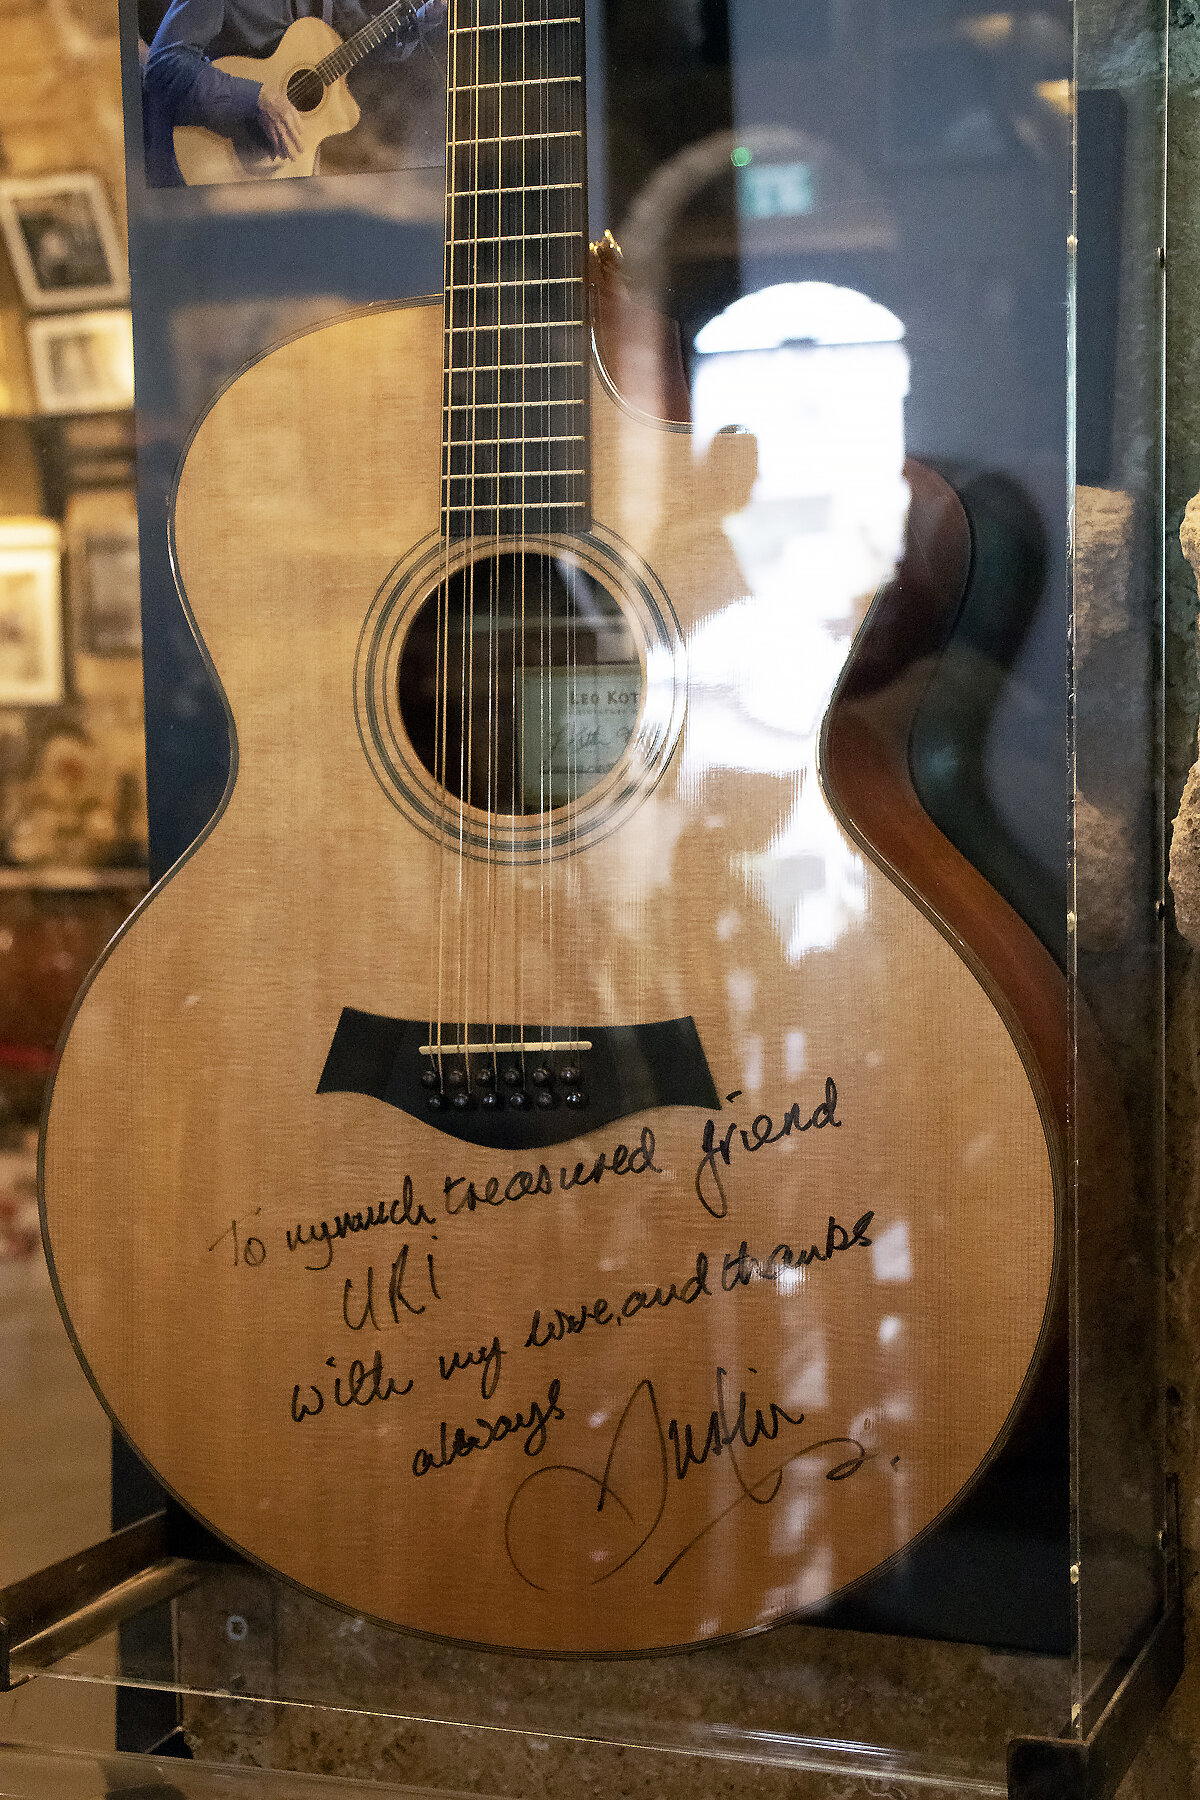 LEO KOT
To my much treasured friend
URI
with my love, and thanks
always Justin